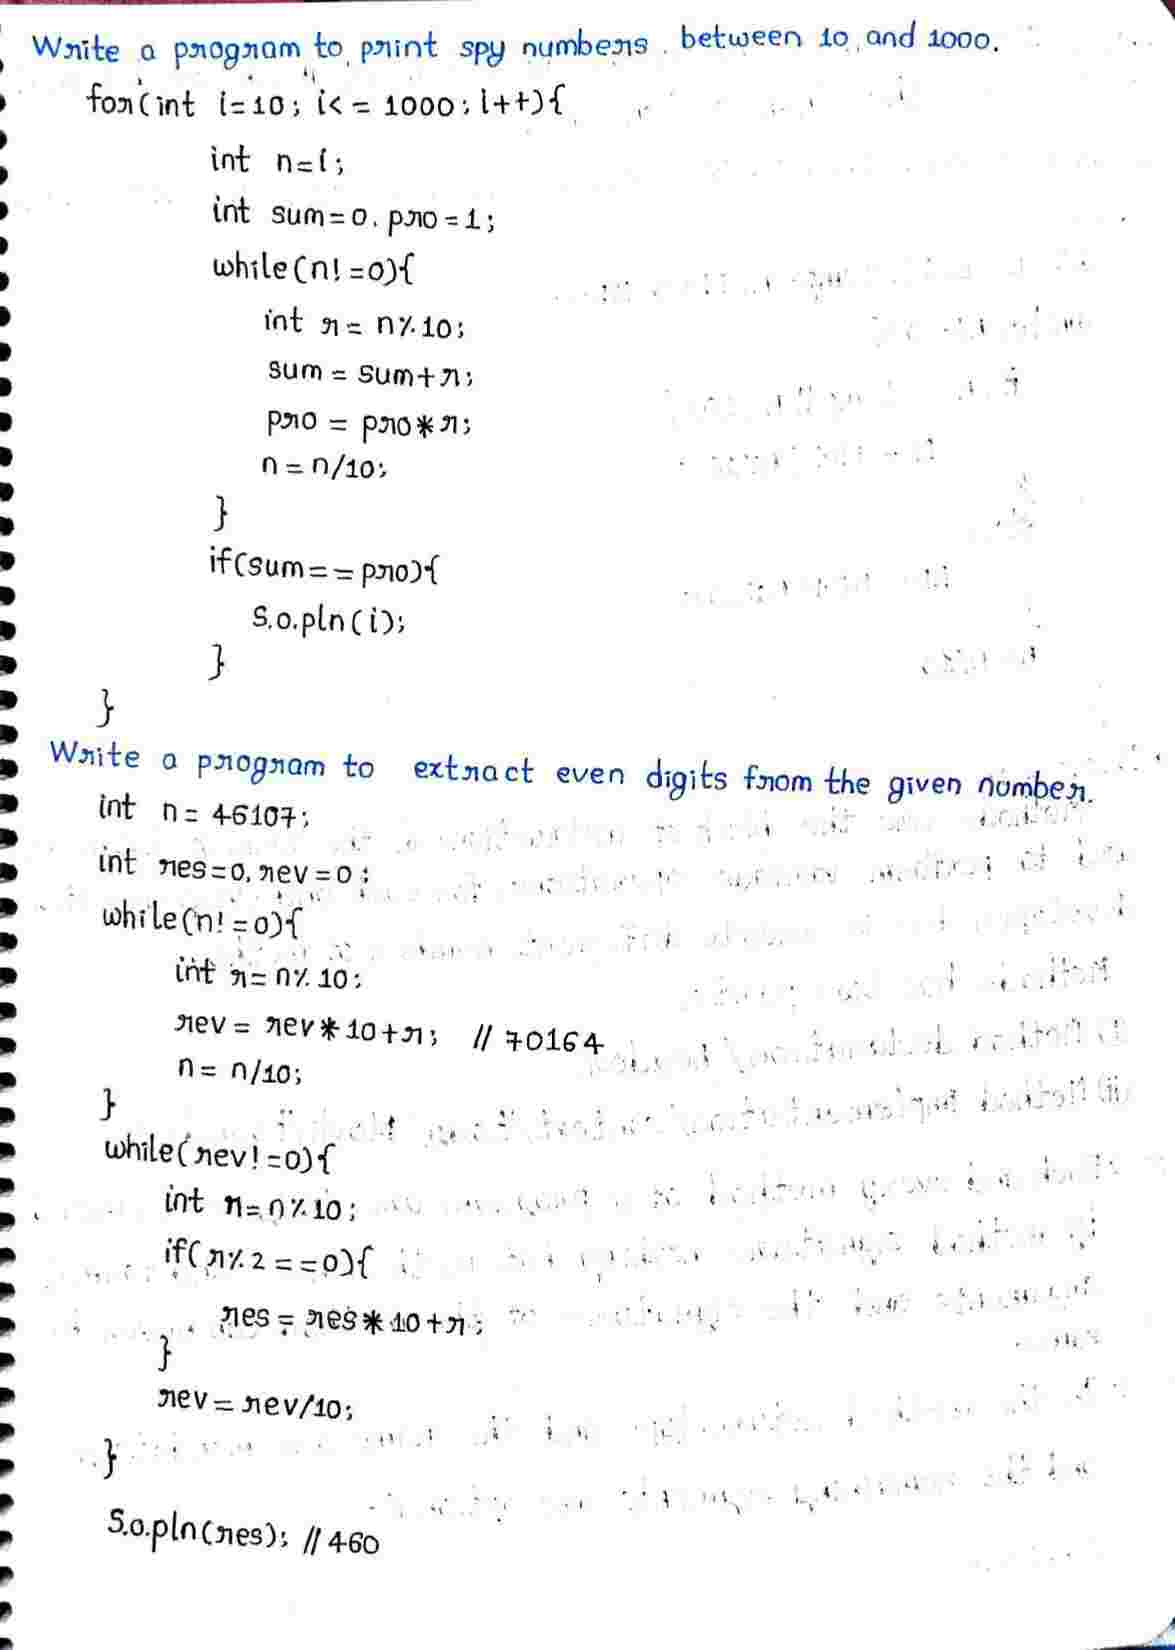 Write a program to print spy numbers between 10 and 1000.
for(int i=10; i<=1000; i++){
int n=i;
int sum=0, pro=1;
while(n!=0){
int r = n%10;
sum = sum+r;
pro = pro*r;
n = n/10;
}
if(sum==pro){
S.o.pln(i);
}
}
Write a program to extract even digits from the given number.
int n = 46107;
int res=0, rev=0;
while(n!=0){
int r=n%10;
rev = rev*10+r; // 70164
n = n/10;
}
while(rev!=0){
int r=n%10;
if(r%2==0){
res = res*10+r;
}
rev = rev/10;
}
S.o.pln(res); // 460